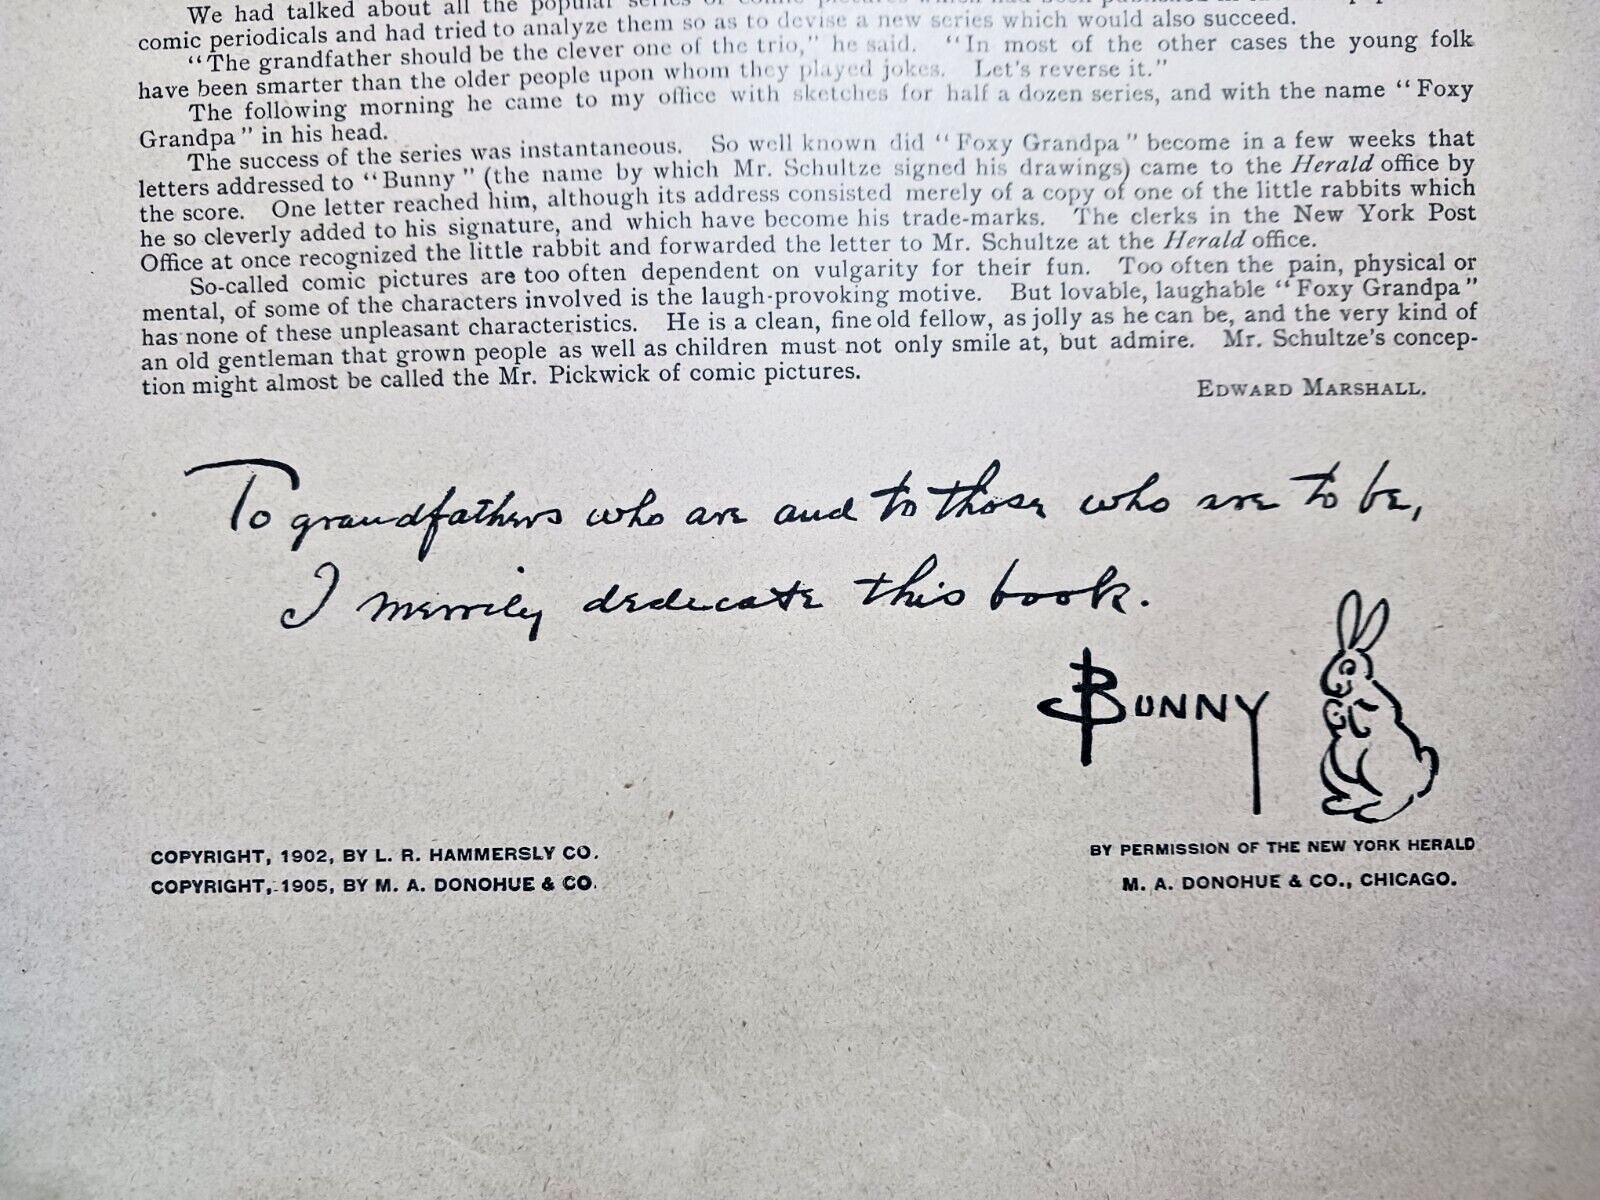 We had talked about all the popular series of comic pictures which had been published in
comic periodicals and had tried to analyze them so as to devise a new series which would also succeed.
“The grandfather should be the clever one of the trio,” he said. “In most of the other cases the young folk
have been smarter than the older people upon whom they played jokes. Let's reverse it.”
The following morning he came to my office with sketches for half a dozen series, and with the name “Foxy
Grandpa” in his head.
The success of the series was instantaneous. So well known did “Foxy Grandpa” become in a few weeks that
letters addressed to “Bunny” (the name by which Mr. Schultze signed his drawings) came to the Herald office by
the score. One letter reached him, although its address consisted merely of a copy of one of the little rabbits which
he so cleverly added to his signature, and which have become his trade-marks. The clerks in the New York Post
Office at once recognized the little rabbit and forwarded the letter to Mr. Schultze at the Herald office.
So-called comic pictures are too often dependent on vulgarity for their fun. Too often the pain, physical or
mental, of some of the characters involved is the laugh-provoking motive. But lovable, laughable “Foxy Grandpa”
has none of these unpleasant characteristics. He is a clean, fine old fellow, as jolly as he can be, and the very kind of
an old gentleman that grown people as well as children must not only smile at, but admire. Mr. Schultze's concep-
tion might almost be called the Mr. Pickwick of comic pictures.
EDWARD MARSHALL.
To grandfathers who are and to those who are to be,
I merrily dedicate this book.
BUNNY
COPYRIGHT, 1902, BY L. R. HAMMERSLY CO.
COPYRIGHT, 1905, BY M. A. DONOHUE & CO.
BY PERMISSION OF THE NEW YORK HERALD
M. A. DONOHUE & CO., CHICAGO.